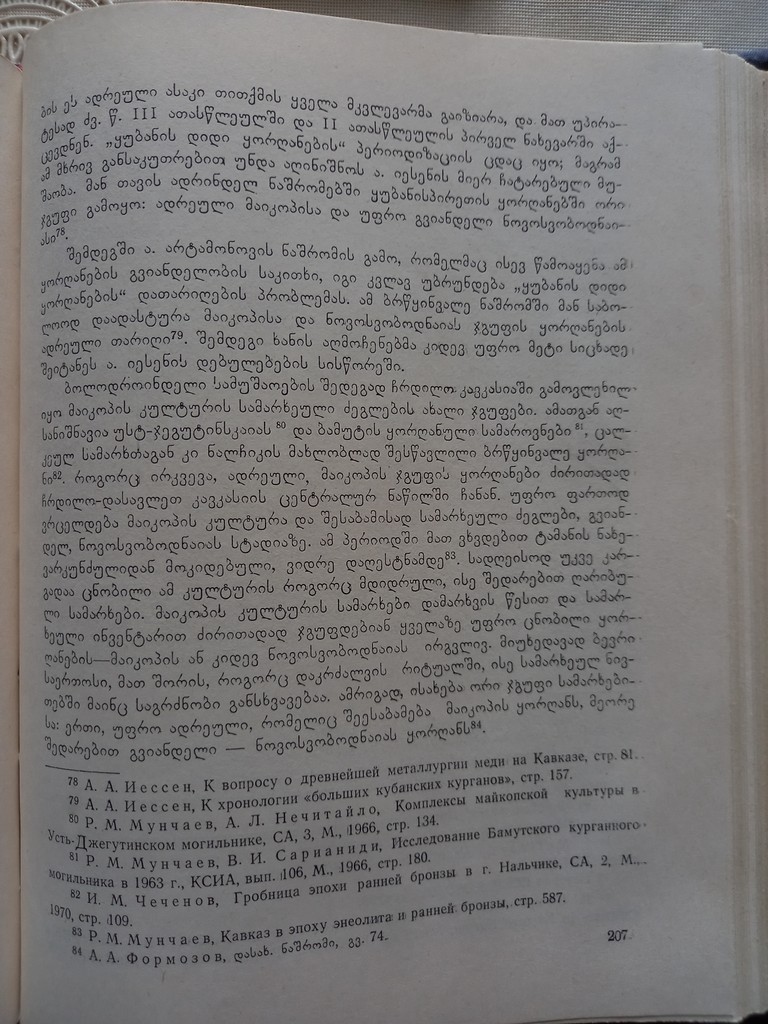 ბის ეს ადრეული ასაკი თითქმის ყველა მკვლევარმა გაიზიარა, და მათ უპირა-
ტესად ძვ. წ. III ათასწლეულში და II ათასწლეულის პირველ ნახევარში აქ-
ცევდნენ. „ყუბანის დიდი ყორღანების“ პერიოდიზაციის ცდაც იყო; მაგრამ
ამ მხრივ განსაკუთრებით უნდა აღინიშნოს ა. იესენის მიერ ჩატარებული მუ-
შაობა. მან თავის ადრინდელ ნაშრომებში ყუბანისპირეთის ყორღანებში ორი
ჯგუფი გამოყო: ადრეული მაიკოპისა და უფრო გვიანდელი ნოვოსვობოდნაი-
ასი⁷⁸.
შემდეგში ა. არტამონოვის ნაშრომის გამო, რომელმაც ისევ წამოაყენა ამ
ყორღანების გვიანდელობის საკითხი, იგი კვლავ უბრუნდება „ყუბანის დიდი
ყორღანების“ დათარიღების პრობლემას. ამ ბრწყინვალე ნაშრომში მან საბო-
ლოოდ დაადასტურა მაიკოპისა და ნოვოსვობოდნაიას ჯგუფის ყორღანების
ადრეული თარიღი⁷⁹. შემდეგი ხანის აღმოჩენებმა კიდევ უფრო მეტი სიცხადე
შეიტანეს ა. იესენის დებულებების სისწორეში.
ბოლოდროინდელი სამუშაოების შედეგად ჩრდილო კავკასიაში გამოვლენილ
იყო მაიკოპის კულტურის სამარხეული ძეგლების ახალი ჯგუფები. ამათგან აღ-
სანიშნავია უსტ-ჯეგუტინსკაიას ⁸⁰ და ბამუტის ყორღანული სამაროვნები ⁸¹, ცალ-
კეულ სამარხთაგან კი ნალჩიკის მახლობლად შესწავლილი ბრწყინვალე ყორღა-
ნი⁸². როგორც ირკვევა, ადრეული, მაიკოპის ჯგუფის ყორღანები ძირითადად
ჩრდილო-დასავლეთ კავკასიის ცენტრალურ ნაწილში ჩანან. უფრო ფართოდ
ვრცელდება მაიკოპის კულტურა და შესაბამისად სამარხეული ძეგლები, გვიან-
დელ, ნოვოსვობოდნაიას სტადიაზე. ამ პერიოდში მათ ვხვდებით ტამანის ნახე-
ვარკუნძულიდან მოკიდებული, ვიდრე დაღესტნამდე⁸³. სადღეისოდ უკვე კარ-
გადაა ცნობილი ამ კულტურის როგორც მდიდრული, ისე შედარებით ღარიბუ-
ლი სამარხები. მაიკოპის კულტურის სამარხები დამარხვის წესით და სამარ-
ხეული ინვენტარით ძირითადად ჯგუფდებიან ყველაზე უფრო ცნობილი ყორ-
ღანების—მაიკოპის ან კიდევ ნოვოსვობოდნაიას ირგვლივ. მიუხედავად ბევრი
საერთოსი, მათ შორის, როგორც დაკრძალვის რიტუალში, ისე სამარხეულ ნივ-
თებში მაინც საგრძნობი განსხვავებაა. ამრიგად, ისახება ორი ჯგუფი სამარხები-
სა: ერთი, უფრო ადრეული, რომელიც შეესაბამება მაიკოპის ყორღანს, მეორე
შედარებით გვიანდელი — ნოვოსვობოდნაიას ყორღანს⁸⁴.
⁷⁸ А. А. Иессен, К вопросу о древнейшей металлургии меди на Кавказе, стр. 81.
⁷⁹ А. А. Иессен, К хронологии «больших кубанских курганов», стр. 157.
⁸⁰ Р. М. Мунчаев, А. Л. Нечитайло, Комплексы майкопской культуры в
Усть-Джегутинском могильнике, СА, 3, М., 1966, стр. 134.
⁸¹ Р. М. Мунчаев, В. И. Сарианиди, Исследование Бамутского курганного
могильника в 1963 г., КСИА, вып. 106, М., 1966, стр. 180.
⁸² И. М. Чеченов, Гробница эпохи ранней бронзы в г. Нальчике, СА, 2, М.,
1970, стр. 109.
⁸³ Р. М. Мунчаев, Кавказ в эпоху энеолита и ранней бронзы, стр. 587.
⁸⁴ А. А. Формозов, დასახ. ნაშრომი, გვ. 74.
207